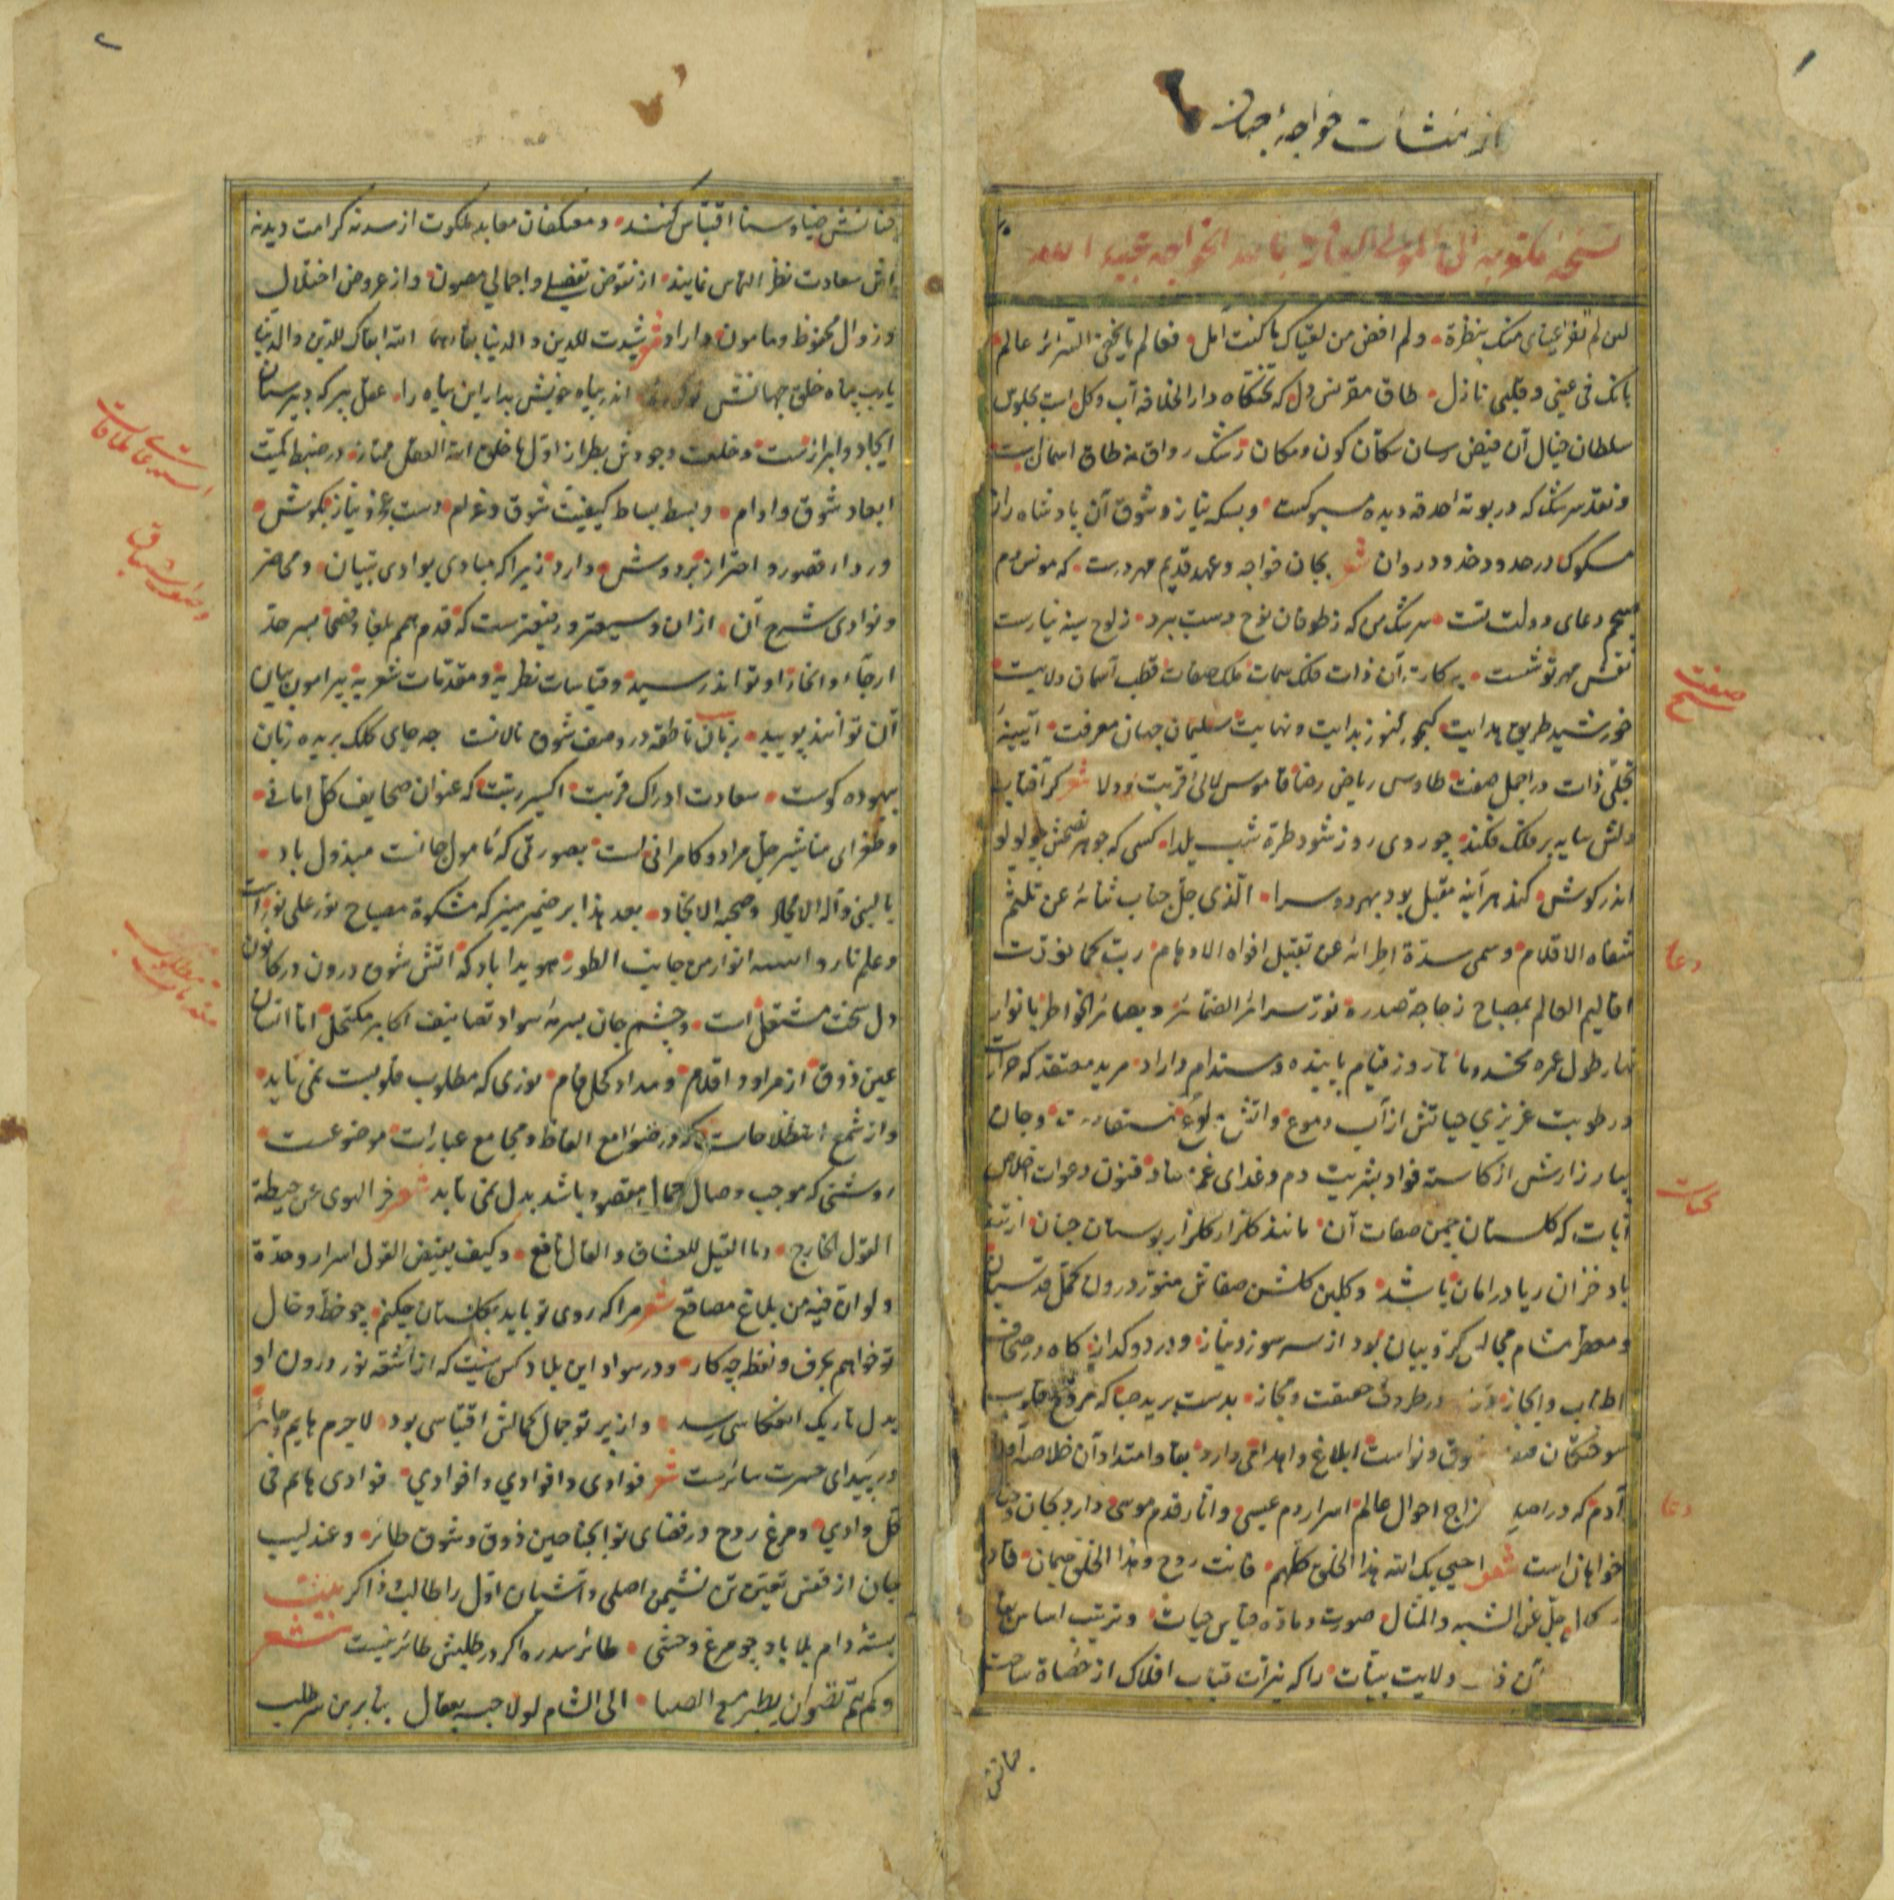 ۱
از منشات خواجه جهان
نسخة مکتوب الی المولی العارف بالله الخواجه عبید الله
لئن لم تفز عینای منک بنظرة ولم افض من لقیاک ما کنت آمل فعالم ما یخفی السرائر عالم
بانک فی عینی و قلبی نازل طاق مقرنس دل که تختگاه دار الخلافه آب و گل است بجلوس
سلطان خیال آن فیض رسان سکان کون و مکان رشک رواق نه طاق آسمان است
و نقد سرشک که در بوته حدقه دیده مسبوکست و بسکه نیاز و شوق آن پادشاه راز
مسکوک در حدود خدود روان شعر بجان خواجه و عهد قدیم عهد درست که مونس دم
صبحم دعای دولت تست سرشک من که ز طوفان نوح دست ببرد ز لوح سینه نیارست
نقش مهر تو شست آن ذات فلک سمات ملک صفات قطب آسمان ولایت
خورشید طریق هدایت گنجور کنوز بدایت و نهایت سلیمان جهان معرفت آیینهٔ
تجلی ذات در اجمل صفت طاوس ریاض رضا قاموس لآلی قربت و ولا شعر گر آفتاب
دلش سایه بر فلک فکند چو روی روز شود طره شب یلدا کسی که جوهر نصحش چو لولو
اندر گوشش کند هر آینه مقبل بود بهر دو سرا الذی جل جناب ثنائه عن تلثم
شفاه الاقلام و سمی سدة اطرائه عن تقبیل افواه الاوهام رب کما نورت
اقالیم العالم بمصباح زجاجة صدره نور سرائر الضمائر و بصائر الخواطر بانوار
نهار طول عمره تا روز قیام پاینده و مستدام داراد مرید معتقد که حرارت
و رطوبت غریزی حیاتش از آب دموع و آتش و جان
بیمار زارش از کاسه فواد بشربت دم و غدای غم فنون دعوات اخلاص
آیات که گلستان چمن صفات آن مانند گلزار بوستان جنان از تند
باد خزان ریا در امان باشد و گلبن گلشن صفاش منور درون کمل قدسیان
و معطر مشام مجالس کروبیان بود از سر سوز و نیاز و درد و گداز گاه در صحاف
اطناب و ایجاز و در ظروف حقیقت و مجاز بدست برید صبا که مروح قلوب
سوختگان ابلاغ و اهدا می دارد بقا و امتداد آن خلاصه اولاد
آدم که در اصلاح مزاج احوال عالم اسرار دم عیسی و آثار قدم موسی دارد بجان
خواهان است شعر احیی بک الله هذا الخلق کلهم فانت روح و هذا الخلق جثمان قادر
جل عن الشبه و المثال صورت و ماده قیاس حیات و ترتیب اساس بقا
آن ولایت بینات را که نیرات قباب افلاک از حضاة ساحت
جنابش
صفت
شیخ
دعا
کتابت
دعا
۲
جنابش ضیا و سنا اقتباس کنند و معتکفان معابد ملکوت از سدنه کرامت دیدنه
اش سعادت نظر التماس نمایند از نقوض تفصیلی و اجمالی مصون و از عروض اختلال
و زوال محفوظ و مامون داراد شعر شیدت للدین و الدنیا بقاءهما الله ابقاک للدین و الدنیا
یارب پناه خلق جهانش اندر پناه خویش بدار این پناه را عقل پیر که دبیرستان
ایجاد و ابرازست و خلعت وجودش بطراز اول ما خلق الله العقل ممتاز در ضبط کمیت
ابعاد شوق و اوام و بسط بساط کیفیت شوق و غرام دست عجز و نیاز بگوش
و رداء قصور و احتراز بر دوش دارد زیرا که مبادی بوادی تبیان و محاضر
و نوادی شرح آن از ان وسیعتر و رفیعترست که قدم همم بلغا و فصحا بسرحد
ارجاء و انحاز او تواند رسید و قیاسات نظریه و مقدمات شعریه پیرامون بیان
آن توانند پویید زبان ناطقه در وصف شوق نالانست چه جای کلک بریده زبان
بیهوده گوست سعادت ادراک قربت اکسیر رتبت که عنوان صحایف کل امانی
و طغرای مناشیر جل مراد و کامرانی است بصورتی که مامول جانست مبذول باد
بالنبی و آله الامجاد و صحبه الانجاد بعد هذا بر ضمیر منیر که مشکوة مصباح نور علی نور است
و علم نار انوار من جانب الطور هویدا باد که آتش شوق درون در کانون
دل سخت مشتعل است و چشم جان بسرمه سواد تصانیف اکابر مکتحل اما انسان
عین ذوق از مراود اقلام و مداد کحل فام نوری که مطلوب قلوبست نمی یابد
و از شمع اصطلاحات که در صوامع الفاظ و مجامع عبارات موضوعست
روشنی که موجب وصال جمال مقصود باشد بدل نمی تابد شعر خبر الهوی عن حیطة
القول خارج و ما القیل للعشاق و القال نافع و کیف یفیض القول اسرار وحدة
و لو ان فیه من بلاغ مصاقع شعر مرا که روی تو باید بگلستان چکنم چو خط و خال
تو خواهم بحرف و نقطه چه کار و در سواد این بلاد کس نیست که از اشعه نور درون او
بدل تاریک انعکاسی رسد و از پرتو جمال کمالش اقتباسی بود لاجرم هایم و حائر
در بیدای حسرت سائرست شعر فوادی و افوادی و افوادی فوادی هایم فی
کل وادی و مرغ روح در فضای نوا بجناحین ذوق و شوق طائر و عندلیب
جان از قفس تعین تن نشیمن اصلی و آشیان اول را طالب و ذاکر بیت
بستهٔ دام بلا باد چو مرغ وحشی طائر سدره اگر در طلبش طائر نیست شعر
و کم هم نضوی ان یطیر مع الصبا الی الشام لولا حبسه بعقال بنابرین سر طلب
استدعای ملاقات
و اظهار اشتیاق